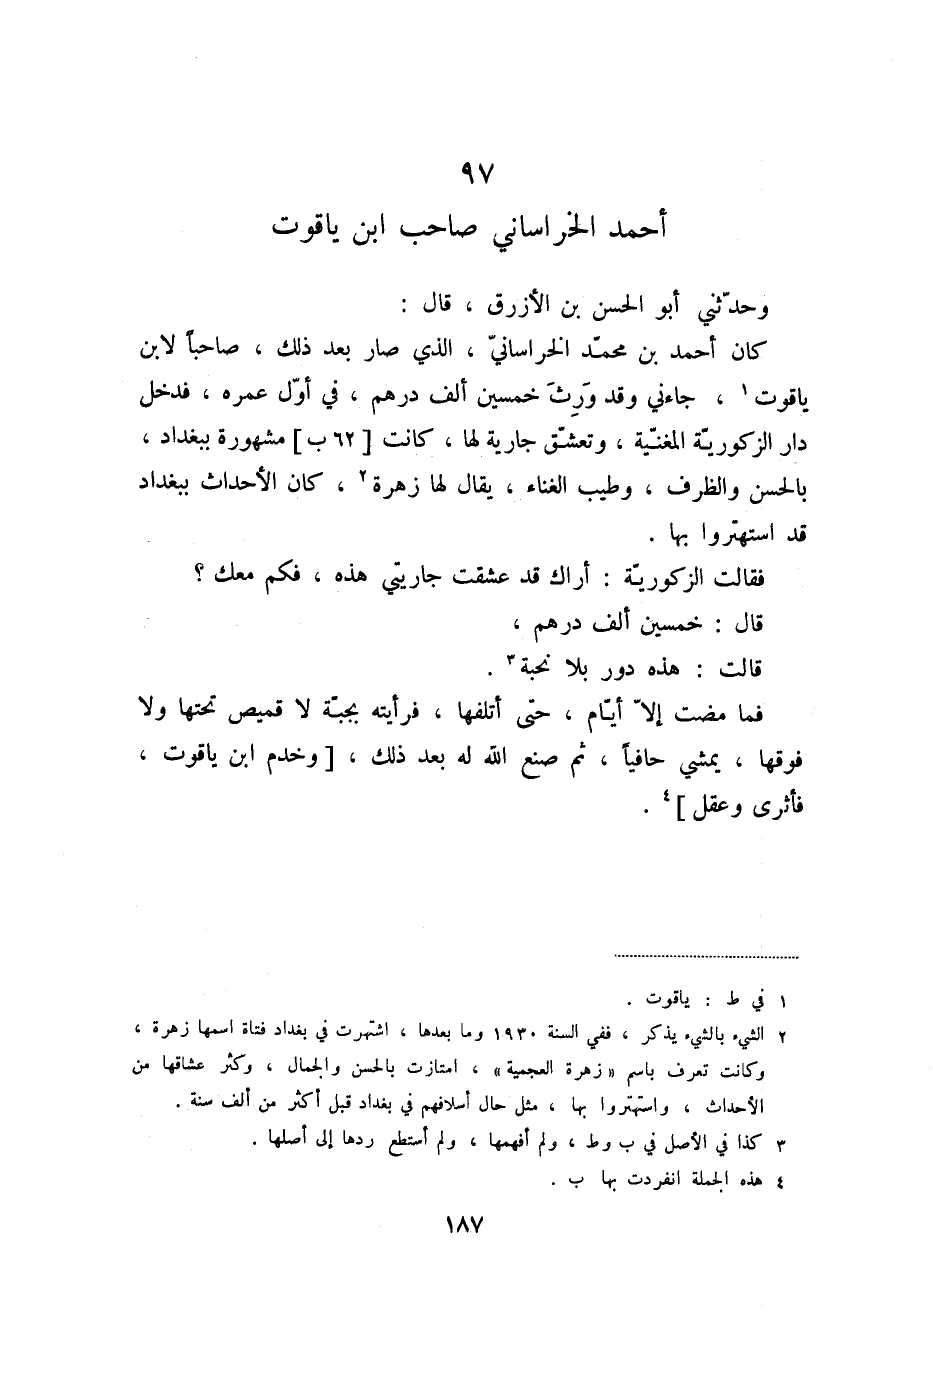 ٩٧
أحمد الخراساني صاحب ابن ياقوت
وحدّثني أبو الحسن بن الأزرق ، قال :
كان أحمد بن محمّد الخراسانيّ ، الذي صار بعد ذلك ، صاحباً لابن
ياقوت ١ ، جاءني وقد وَرِثَ خمسين ألف درهم ، في أوّل عمره ، فدخل
دار الزكوريّة المغنّية ، وتعشّق جارية لها ، كانت [ ٦٢ ب ] مشهورة ببغداد ،
بالحسن والظرف ، وطيب الغناء ، يقال لها زهرة ٢ ، كان الأحداث ببغداد
قد استهتروا بها .
فقالت الزكوريّة : أراك قد عشقت جاريتي هذه ، فكم معك ؟
قال : خمسين ألف درهم ،
قالت : هذه دور بلا نحبة ٣ .
فما مضت إلاّ أيّام ، حتّى أتلفها ، فرأيته بجبّة لا قميص تحتها ولا
فوقها ، يمشي حافياً ، ثم صنع الله له بعد ذلك ، [ وخدم ابن ياقوت ،
فأثرى وعقل ] ٤ .
١ في ط : ياقوت .
٢ الشيء بالشيء يذكر ، ففي السنة ١٩٣٠ وما بعدها ، اشتهرت في بغداد فتاة اسمها زهرة ،
وكانت تعرف باسم « زهرة العجمية » ، امتازت بالحسن والجمال ، وكثر عشاقها من
الأحداث ، واستهتروا بها ، مثل حال أسلافهم في بغداد قبل أكثر من ألف سنة .
٣ كذا في الأصل في ب وط ، ولم أفهمها ، ولم أستطع ردها إلى أصلها .
٤ هذه الجملة انفردت بها ب .
١٨٧